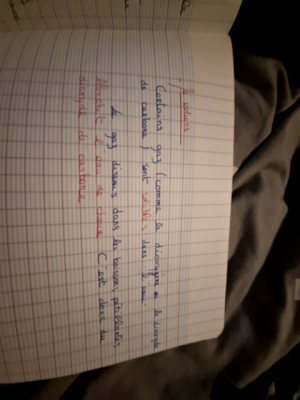 Je retiens
Certains gaz (comme le dioxygène ou le dioxyde
de carbone) sont solubles dans l'eau.
Le gaz dissous dans les boissons pétillantes
trouble l'eau de chaux C'est donc du
dioxyde de carbone